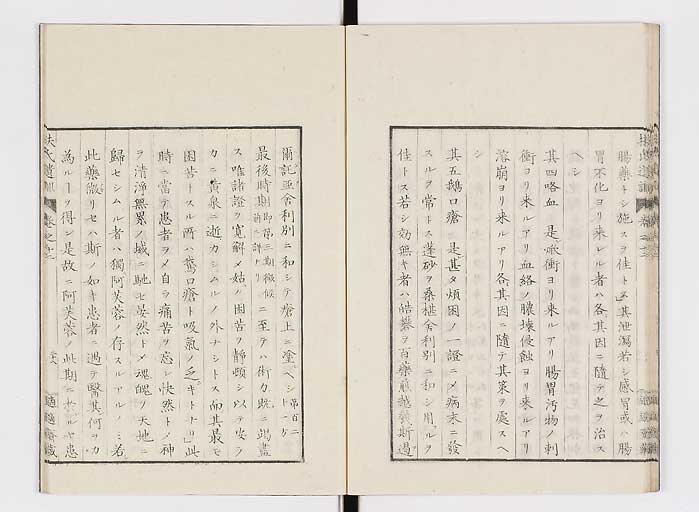 腸藥トシ施スヲ佳トス其泄瀉若シ感冒或ハ腸
胃不化ヨリ來レル者ハ各其因ニ隨テ之ヲ治ス
ヘシ
其四咯血 是㷔衝ヨリ來ルアリ腸胃汚物ノ刺
衝ヨリ來ルアリ血絡ノ膿壊侵蝕ヨリ來ルアリ
溶崩ヨリ來ルアリ各其因ニ隨テ其策ヲ處スヘ
シ
其五鵝口瘡 是甚タ煩困ノ一證ニメ病末ニ發
スルヲ常トス蓬砂ヲ桑椹舍利別ニ和シ用ルヲ
佳トス若シ効無キ者ハ皓礬ヲ百藥煎越幾斯過
爾託亜舍利別ニ和シテ瘡上ニ塗ヘシ 第百二十一方
最後時期 即第三期徴候前ニ詳ナリ ニ至テハ術力既ニ竭盡
ス唯諸證ヲ寛解メ姑ク困苦ヲ靜頓シ以テ安ラ
カニ黄泉ニ逝カシムルノ外ナシトス而其最モ
困苦トスル所ハ鵞口瘡ト吸氣ノ乏キトナリ此
時ニ當テ患者ヲメ自ラ痛苦ヲ忘レ快然トメ神
ヲ清淨無累ノ域ニ馳セ晏然トメ魂魄ヲ天地ニ
歸セシムル者ハ獨阿芙蓉ノ存スルアルノミ若
此藥微リセハ斯ノ如キ患者ニ遇テ醫其何ヲカ
為ルヿヲ得ン是故ニ阿芙蓉ノ此期ニ於ルヤ患
扶氏遺訓 卷之
適適齋藏